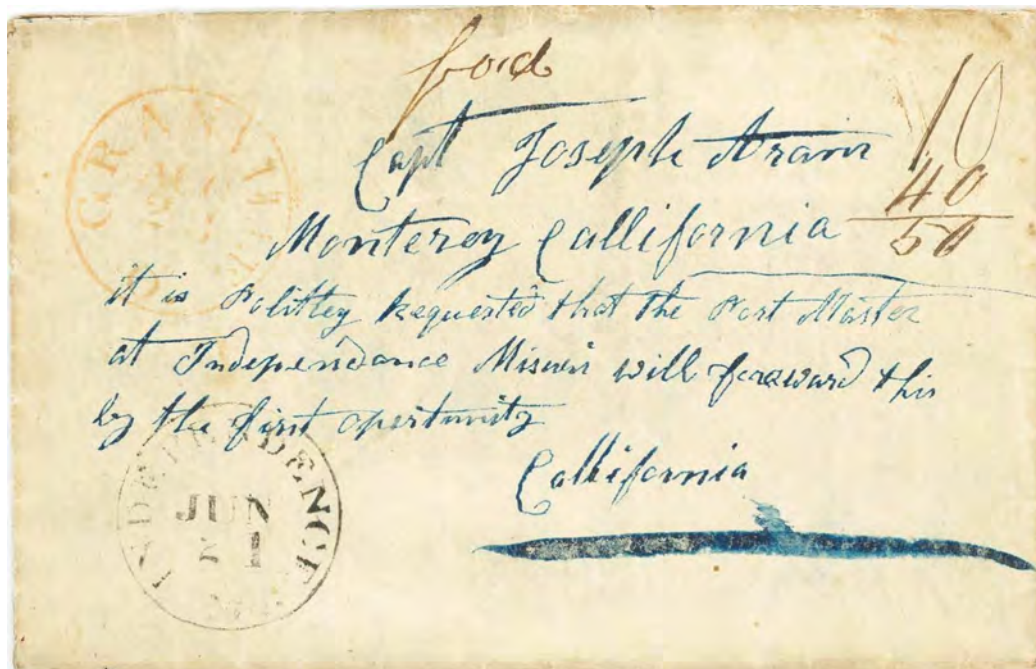 10
40
50
Capt Joseph Aram
Monterey Callifornia
it is Politley Requested that the Post Master
at Independance Missuri will foreward this
by the first opertunity
Callifornia
INDEPENDENCE
JUN
21